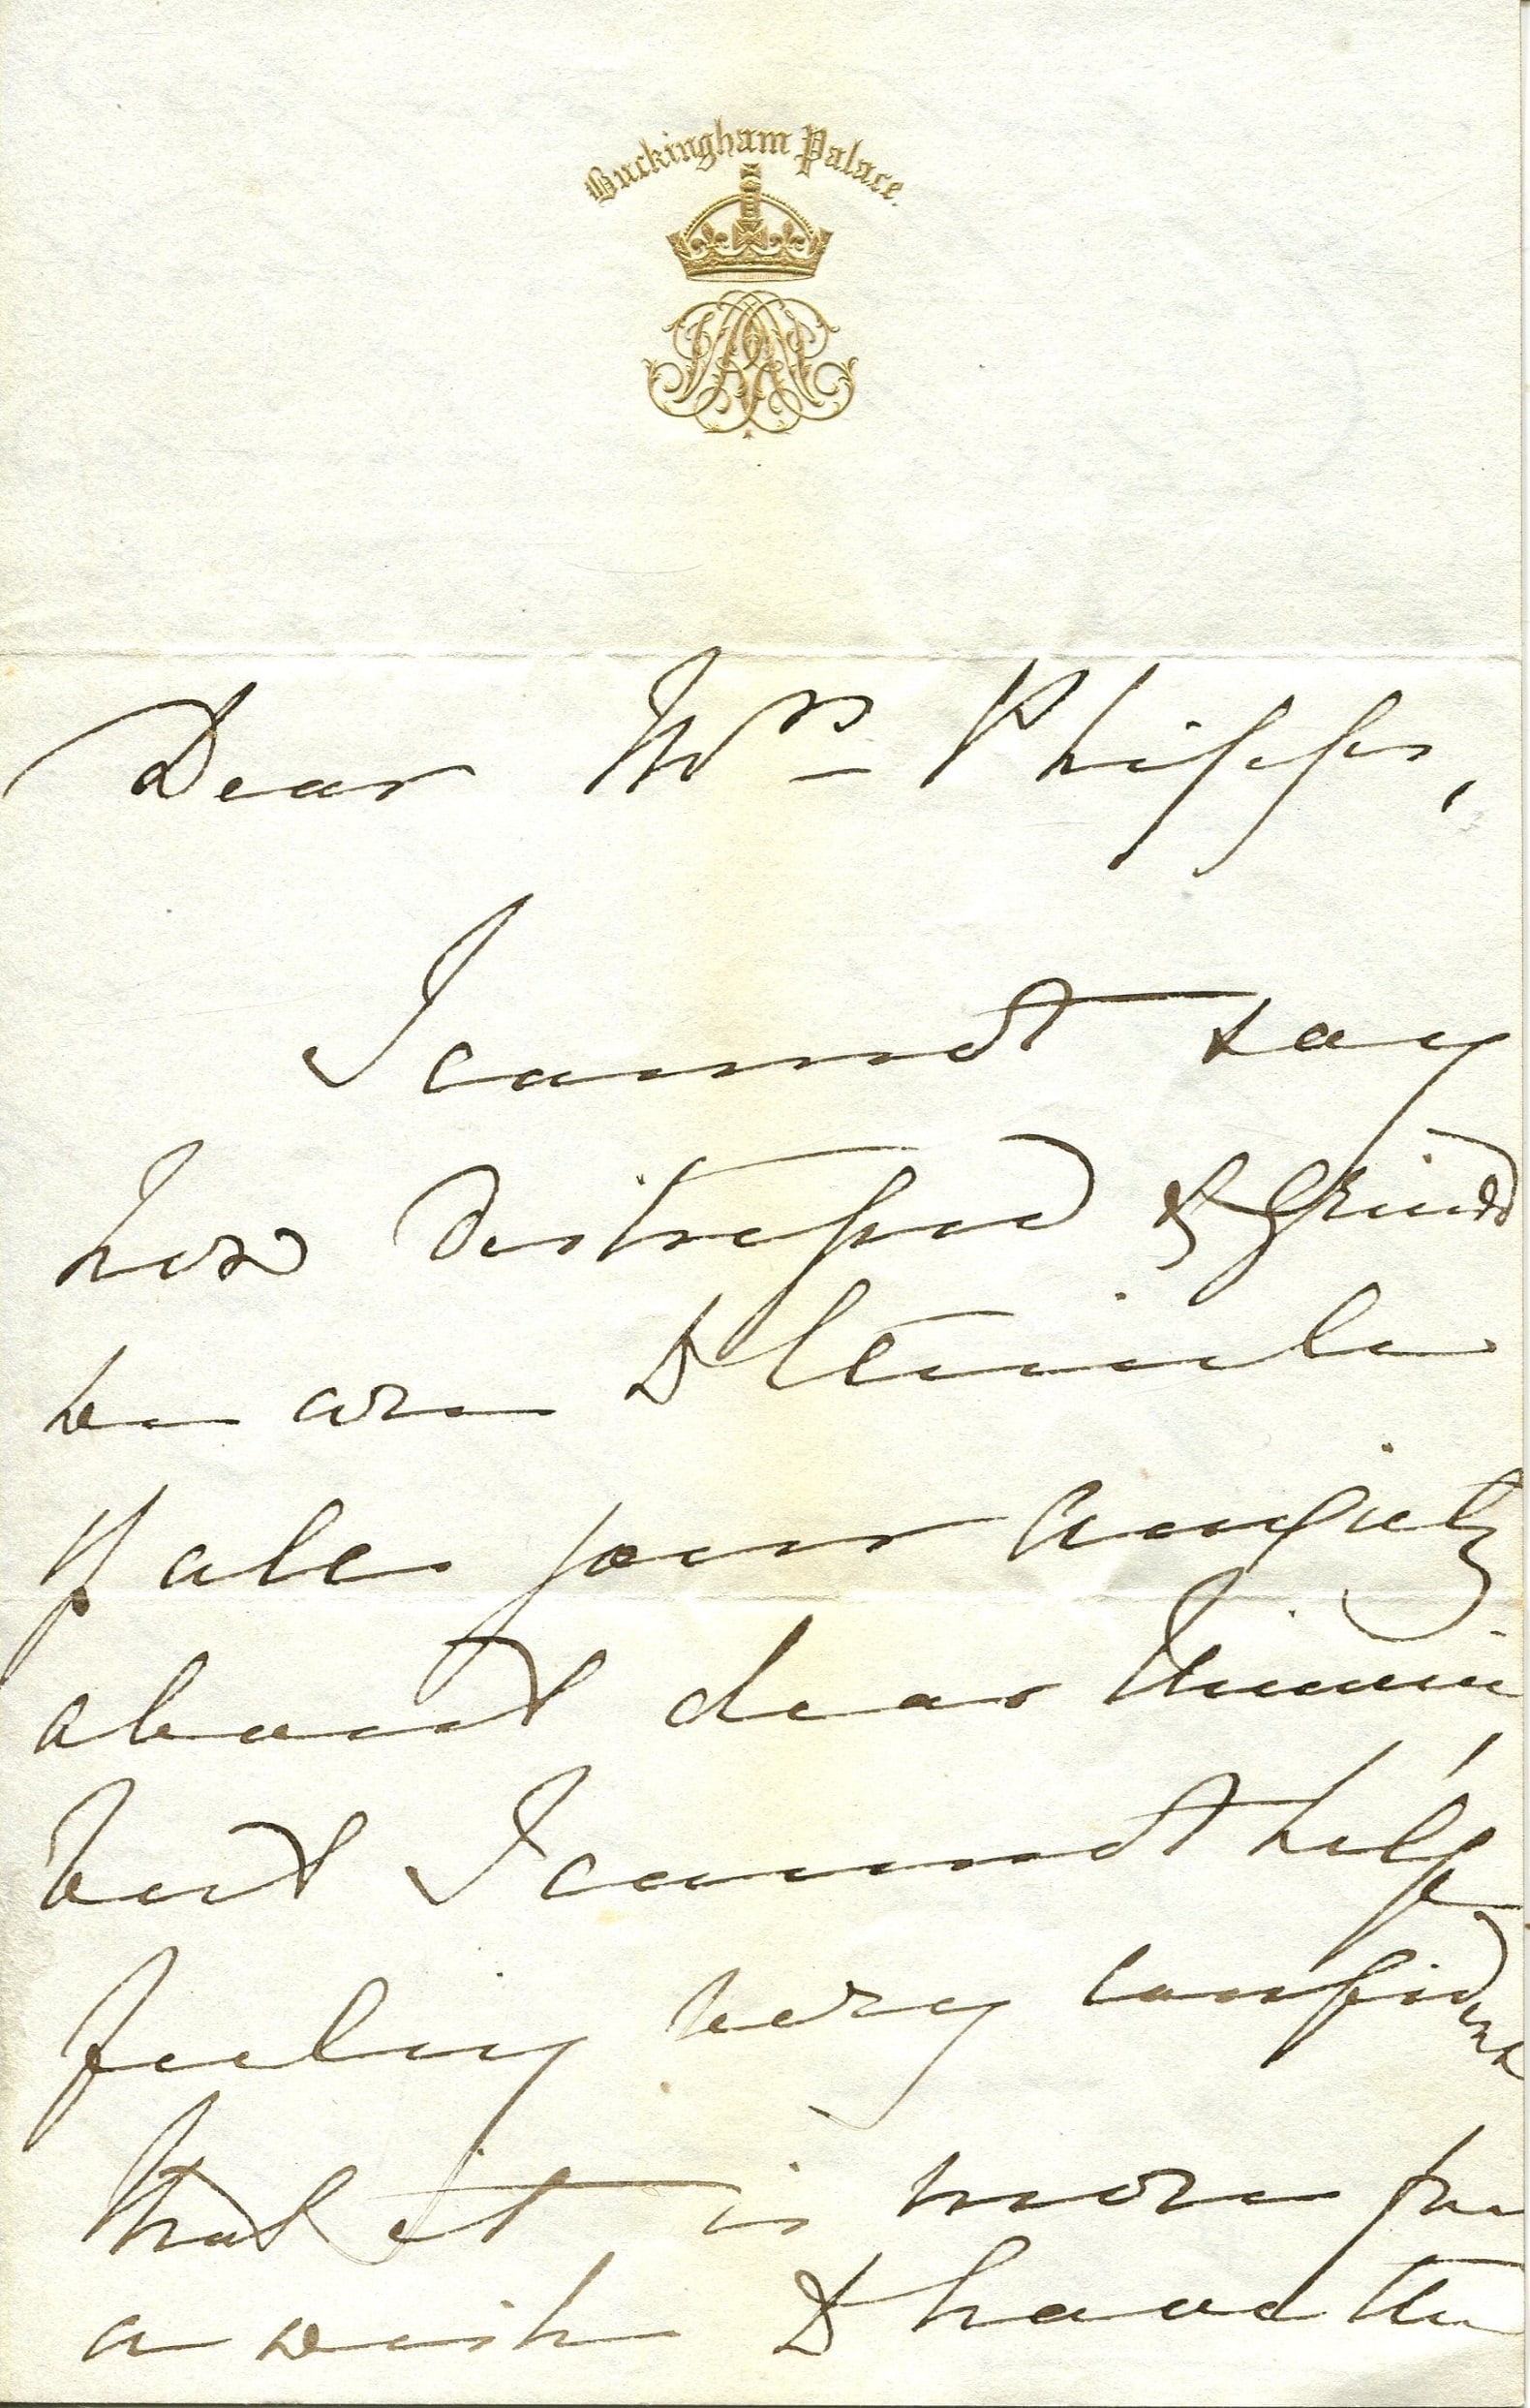 Buckingham Palace.
Dear Mrs Phipps,
I cannot say
how distressed & grieved
we are to
of all your anxiety
about dear
but I cannot help
feeling very confident
that it is more
a wish to have the